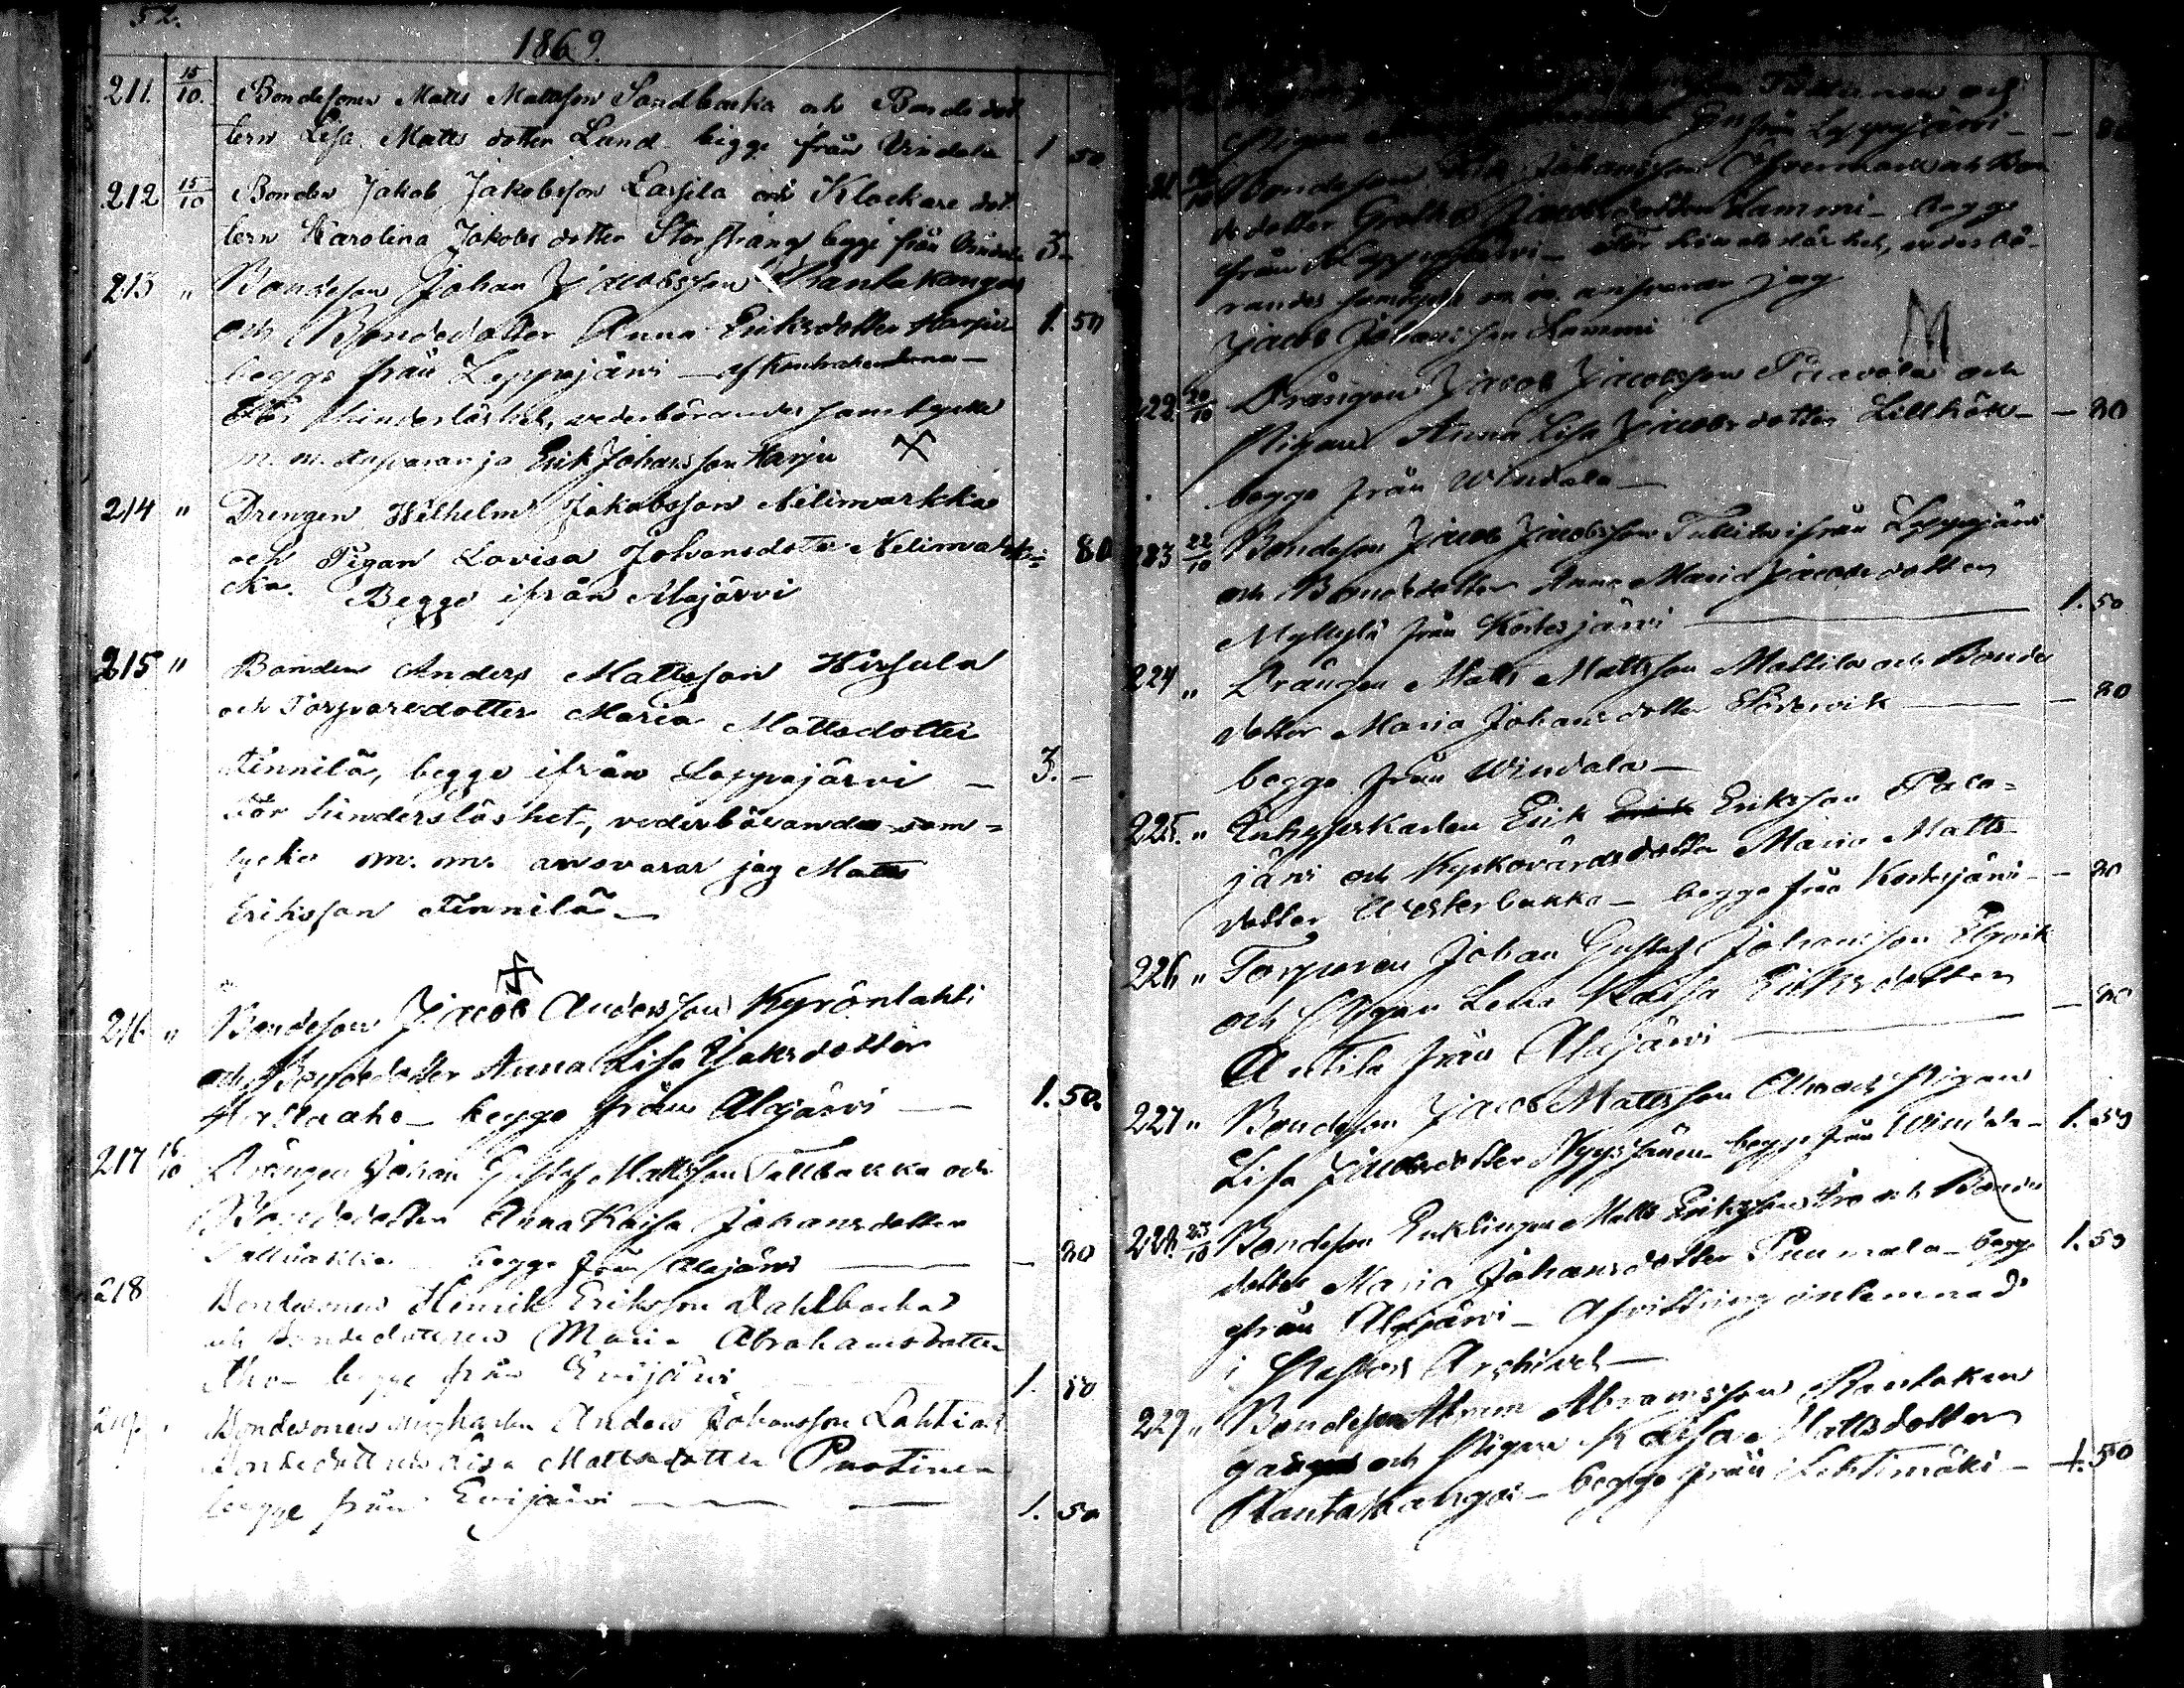 52.
1869.
211. 15/10. Bondesonen Matts Mattsson Sandbacka och Bondedot
tern Lisa Matts dotter Lund begge från Vindala 1 50
212 15/10 Bonden Jakob Jakobsson Lassila och Klockare dot
tern Karolina Jakobs dotter Storsträng begge från Vindala 3 -
213 " Bondeson Johan Jacobsson Rantakangas
och Bondedotter Anna Eriksdotter Harju 1. 50
begge från Lappajärvi - af Kontrahenterna -
För hinderslöshet, vederbörandes samtycke
m. m. ansvarar ja Erik Johansson Harju
214 " Drengen Wilhelm Jakobsson Nelimarkka
och Pigan Lovisa Johansdotter Nelimark- - 80
ka. Begge ifrån Alajärvi
215 " Bonden Anders Mattsson Hirsula
och Torparedotter Maria Mattsdotter
Finnilä, begge ifrån Lappajärvi - 3. -
För hinderslöshet, vederbörandes sam=
tycke m. m. answarar jag Matts
Eriksson Finnilä -
216 " Bondeson Jacob Andersson Kyrönlahti
och Bondedotter Anna Lisa
begge från Alajärvi - 1. 50.
217 16/10 Drängen Johan Gustaf Mattsson Tallbacka och
Bondedotter Anna Kaisa Johansdotter
begge från Alajärvi - 80
218 Bondesonen Henrik Eriksson Dahlbacka
och Bondedottren Maria Abrahamsdotter
Aho - begge från Evijärvi 1. 50
219. Bondesonen Anders Johansson Lahti och
Bondedottren Lisa Mattsdotter Puotinen
begge från Evijärvi 1. 50
och
Pigan från Lappajärvi - - 80
Bondeson Johansson Öfvermark och Bon
dedotter Gretha Jacobsdotter Lammi - begge
från Lappajärvi - För hinderslöshet, vederbö-
randes samtycke m. m. ansvarar jag
Jacob Johansson Lammi
222. 20/10 Drängen Jacob Jacobsson Paavola och
Pigan Anna Lisa Jacobsdotter Lillhök - - 80
begge från Windala -
223 22/10 Bondeson Jacob Jacobsson ifrån Lappajärvi
och Bondedotter Anna Maria Jacobsdotter
Myllylä från Kortesjärvi 1. 50
224 " Drängen Matts Mattsson Mattila och Bonde
dotter Maria Johansdotter - 80
begge från Windala -
225. " Enkesterkarlen Erik Eriksson Palo=
järvi och Kyrkovärdsdotter Maria Matts
dotter Westerbacka - begge från Kortesjärvi - - 80
226 " Torparen Johan Gustaf Johansson
och Pigan Lena Kaisa Eriksdotter
Antila från Alajärvi - 80
227 " Bondeson Jacob Mattsson Aho och Pigan
Lisa Jacobsdotter Nyyssönen begge från Windala - 1. 50
228. 23/10 Bondeson Enklingen Matts Eriksson och Bonde
dotter Maria Johansdotter Puumala - begge 1. 50
från Alajärvi - Afvittring inlemnad
i Pastors Archivet -
229 " Bondeson Abram Abramsson Rantakan
gas och Pigan Kaisa Mattsdotter
Rantakangas - begge från Lehtimäki - 1. 50